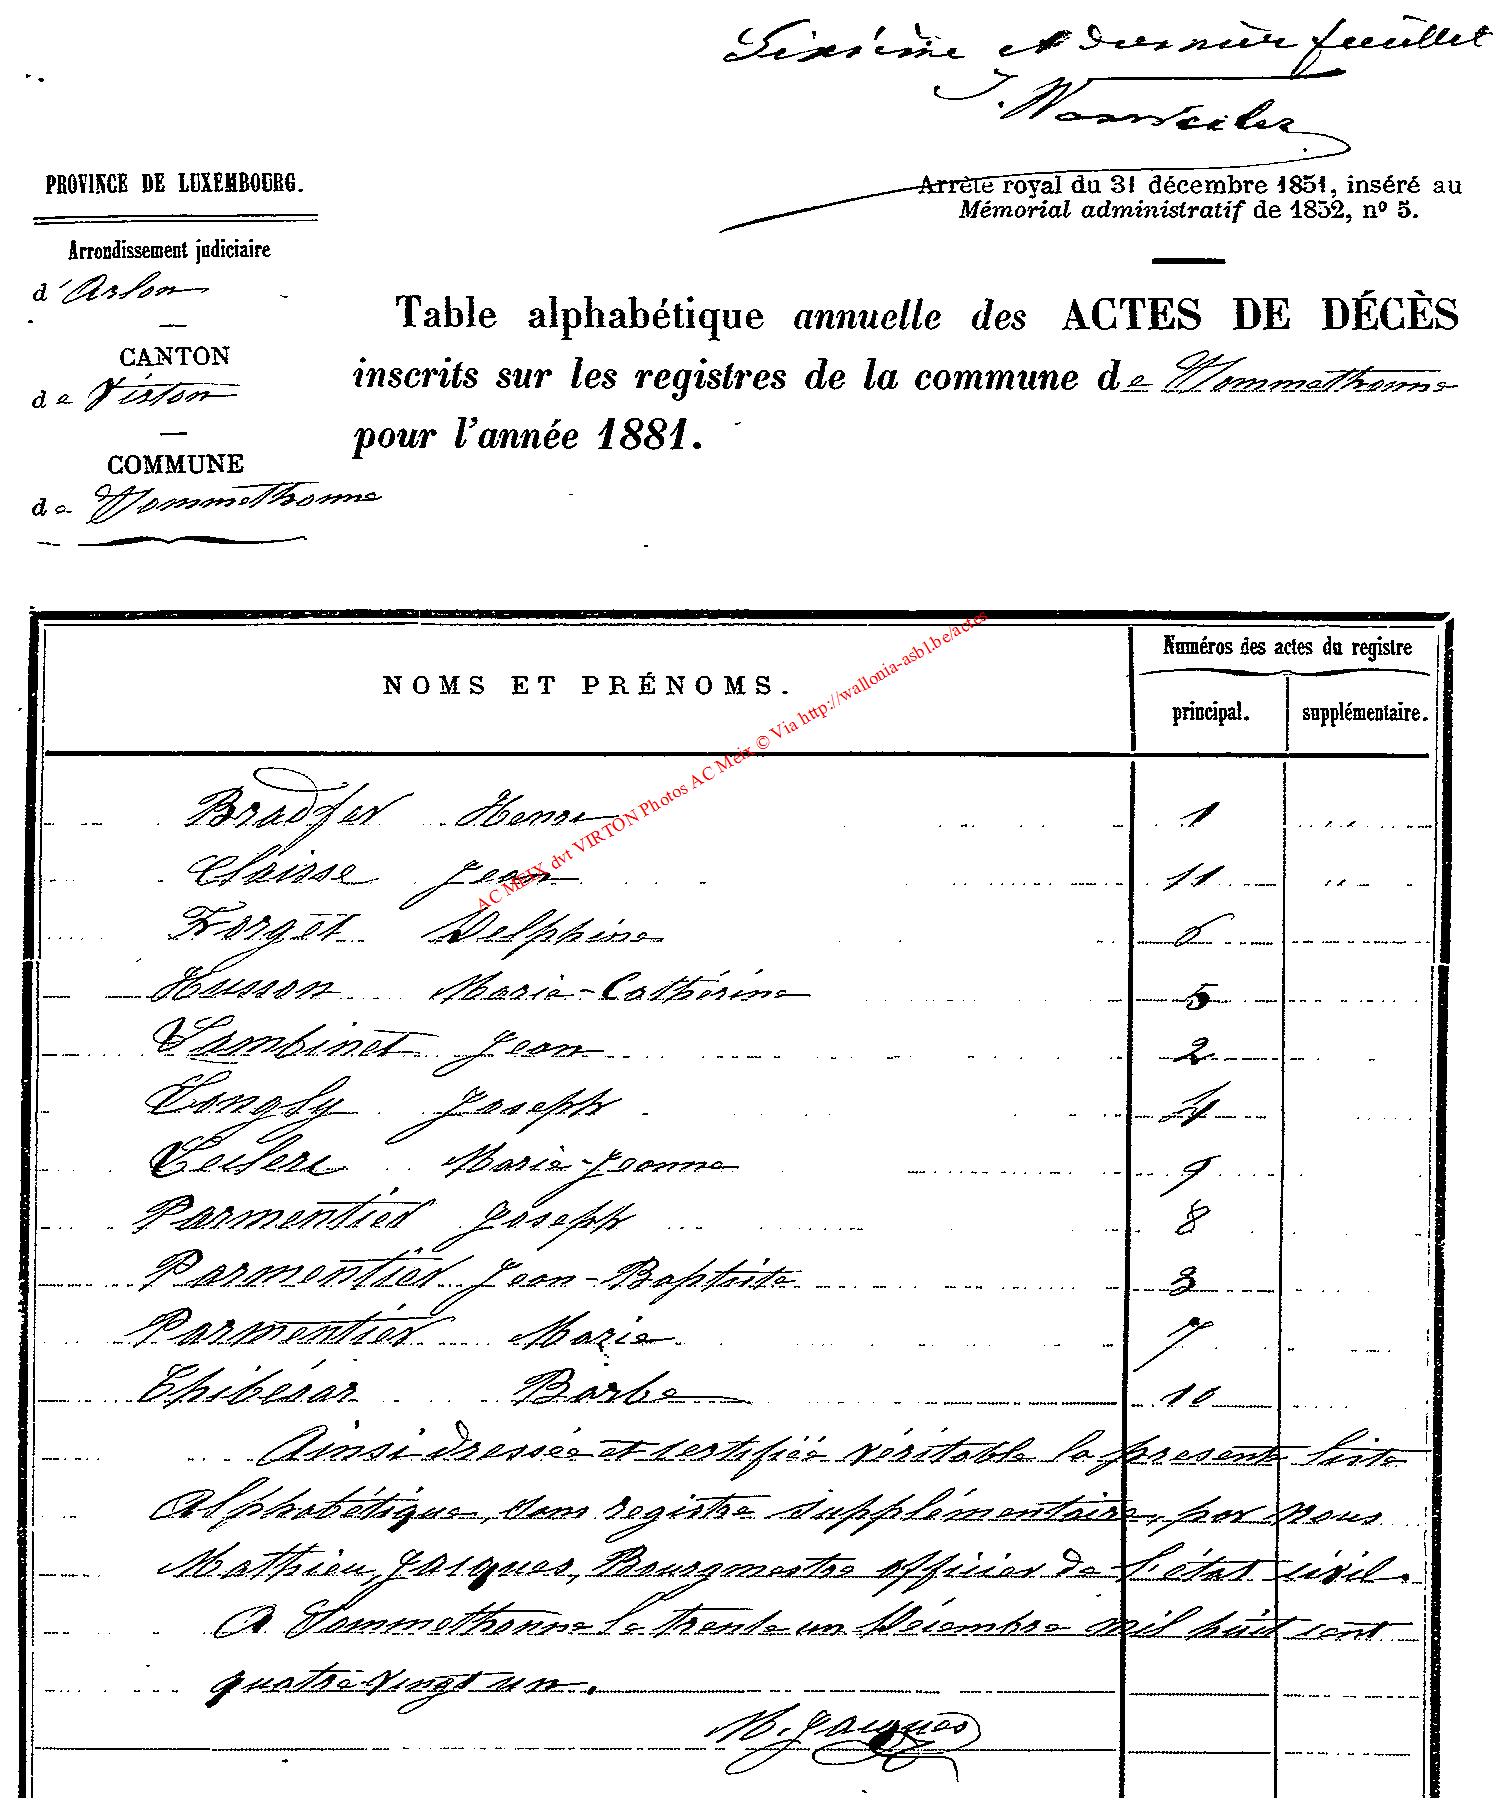 Sixième et dernier feuillet
J. Wanweiler
PROVINCE DE LUXEMBOURG.
Arrondissement judiciaire
d'Arlon
CANTON
de Virton
COMMUNE
de Sommethonne
Arrêté royal du 31 décembre 1851, inséré au
Mémorial administratif de 1852, nº 5.
Table alphabétique annuelle des ACTES DE DÉCÈS
inscrits sur les registres de la commune de Sommethonne
pour l'année 1881.
NOMS ET PRÉNOMS.
Numéros des actes du registre
principal. supplémentaire.
Bradfer Henri 1 " "
Claisse Jean 11 " "
Forget Delphine 6
Husson Marie-Cathérine 5
Lambinet Jean 2
Longly Joseph 4
Leclerc Marie-Jeanne 9
Parmentier Joseph 8
Parmentier Jean-Baptiste 3
Parmentier Marie 7
Thibésar Barbe 10
Ainsi dressée et certifiée véritable la présente liste
Alphabétique, dans registre supplémentaire, par nous
Mathieu Jacques, Bourgmestre officier de l'état civil.
A Sommethonne le trente un Décembre mil huit cent
quatre vingt un.
M. Jacques
AC MEIX dvt VIRTON Photos AC Meix © Via http://wallonia-asbl.be/actes